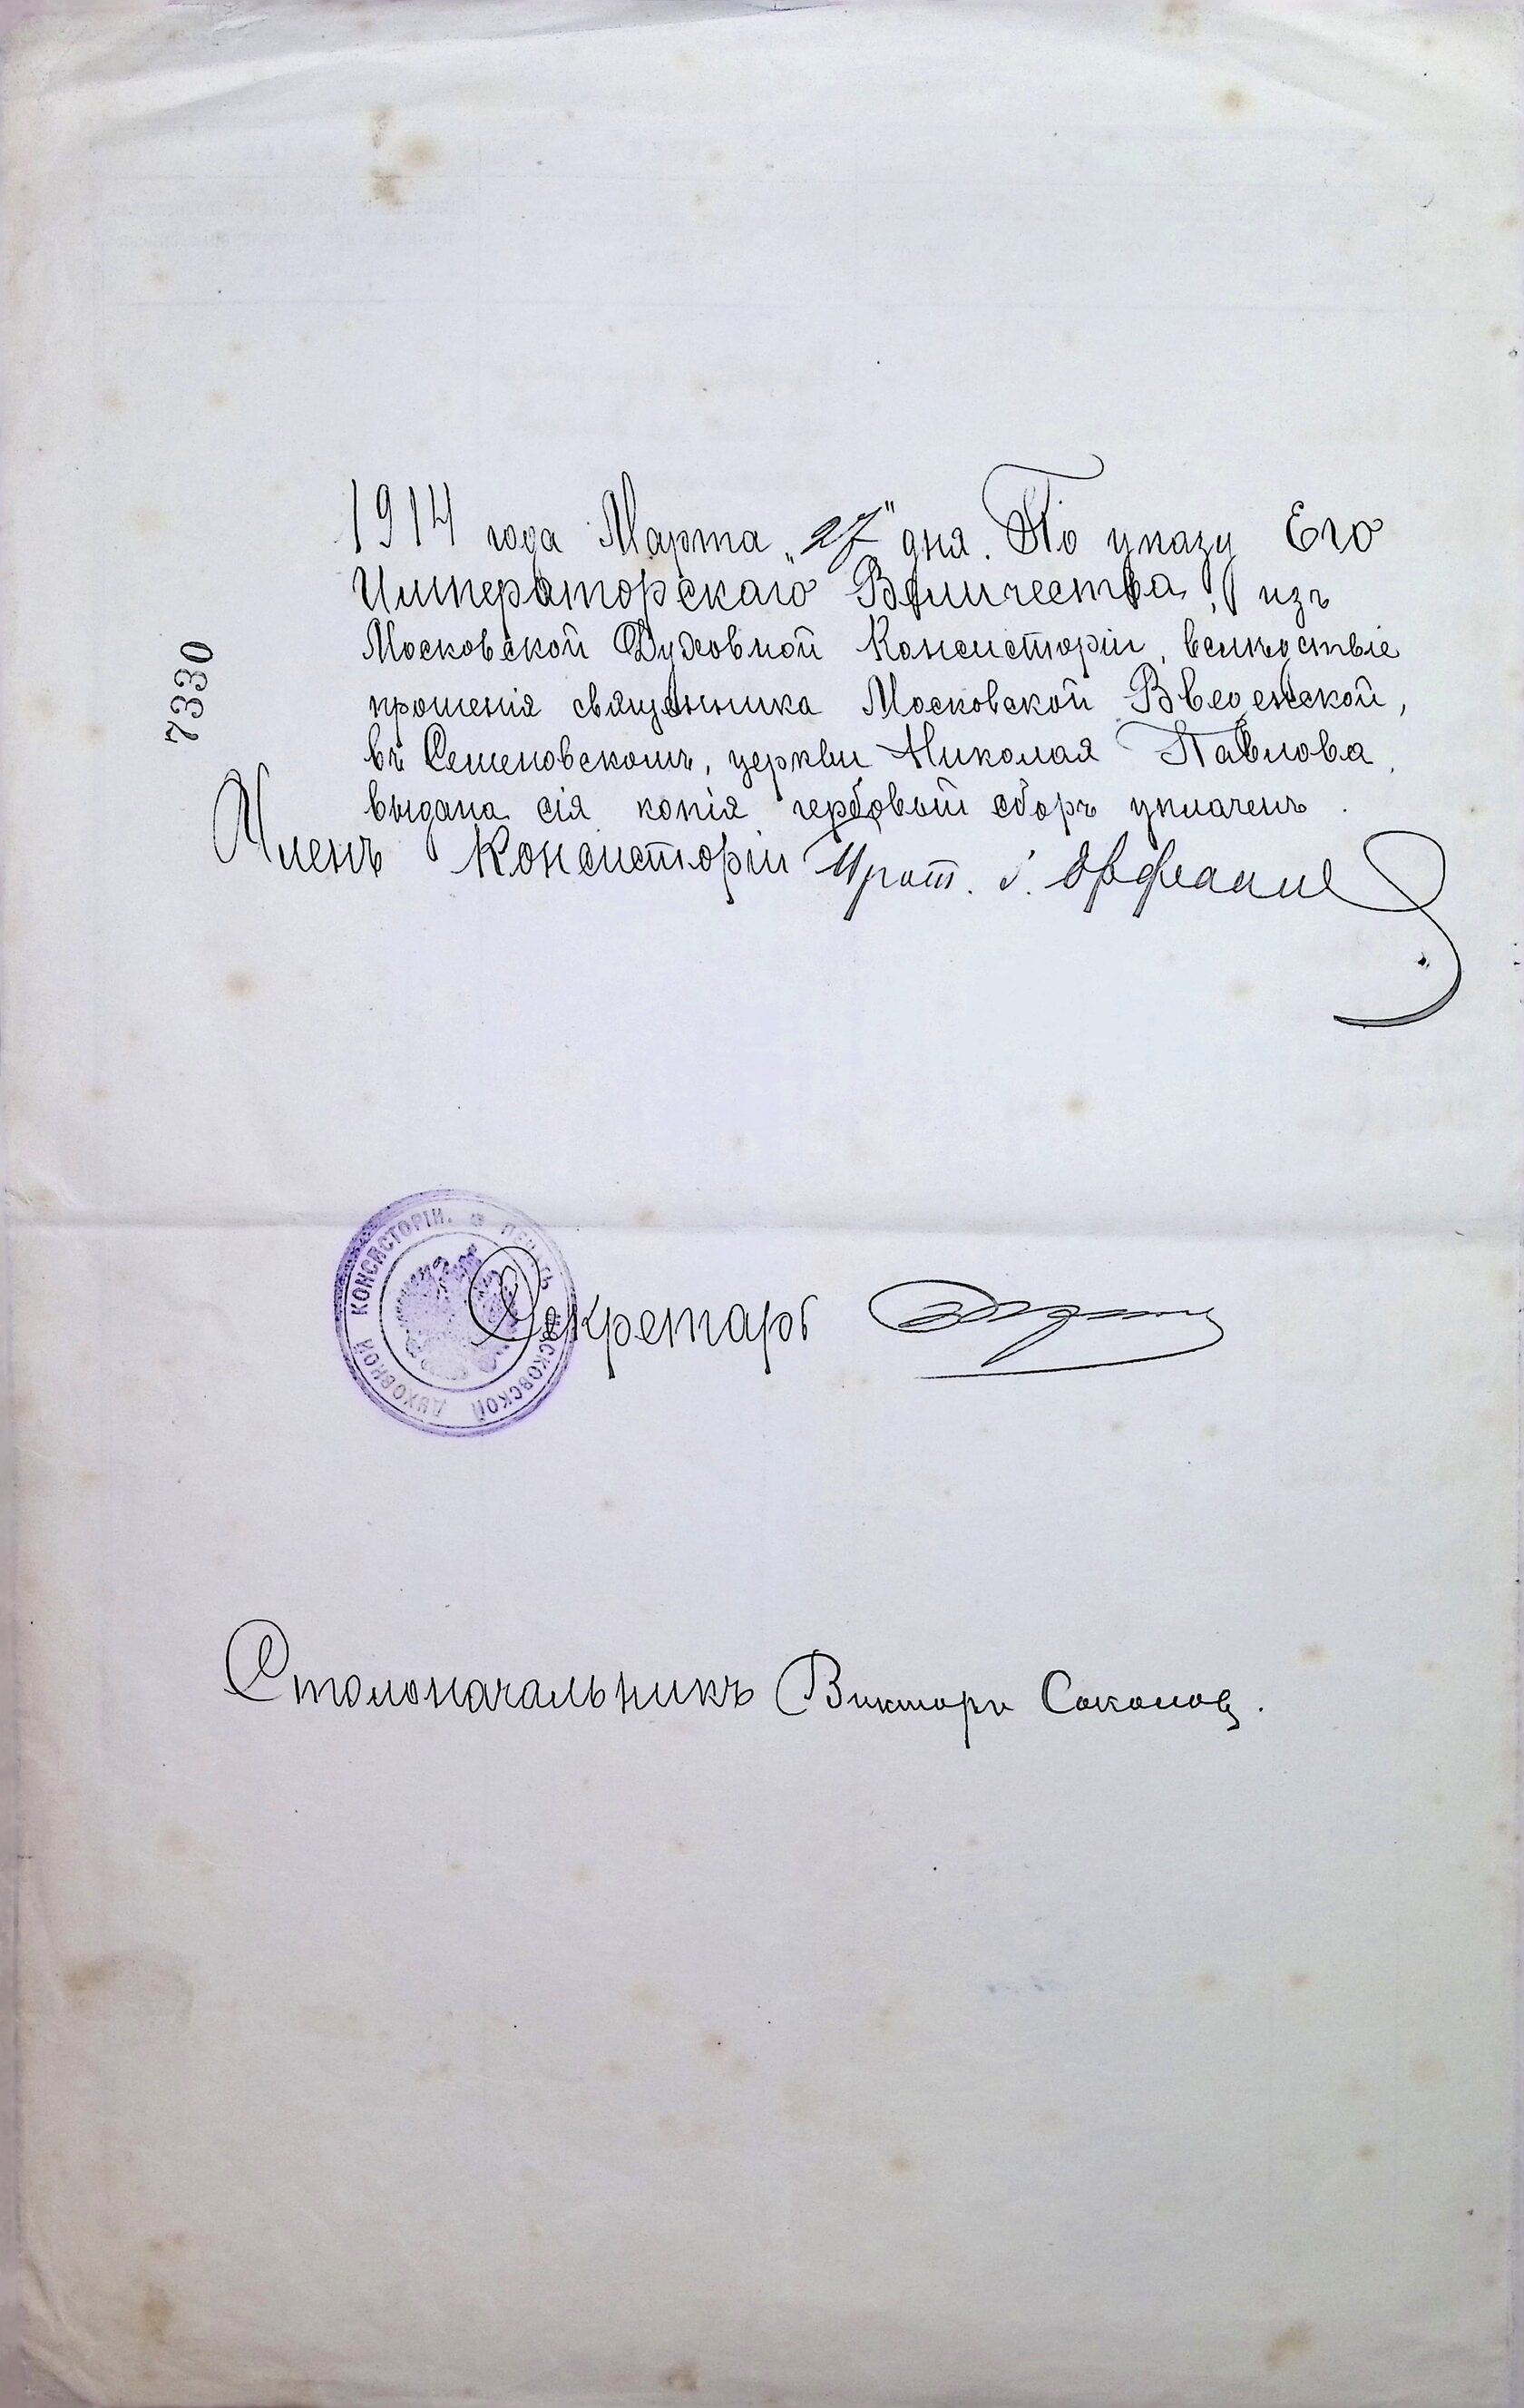 1914 года Марта „27" дня. По указу Его
Императорскаго Величества, изъ
Московской Духовной Консисторіи, вслѣдствіе
прошенія священника Московской Введенской,
въ Семеновскомъ, церкви Николая Павлова,
выдана сія копія гербовый сборъ уплаченъ.
7330
Членъ Консисторіи Прот.
ПЕЧАТЬ МОСКОВСКОЙ ДУХОВНОЙ КОНСИСТОРІИ.
Секретарь
Столоначальникъ Викторъ Соколовъ.